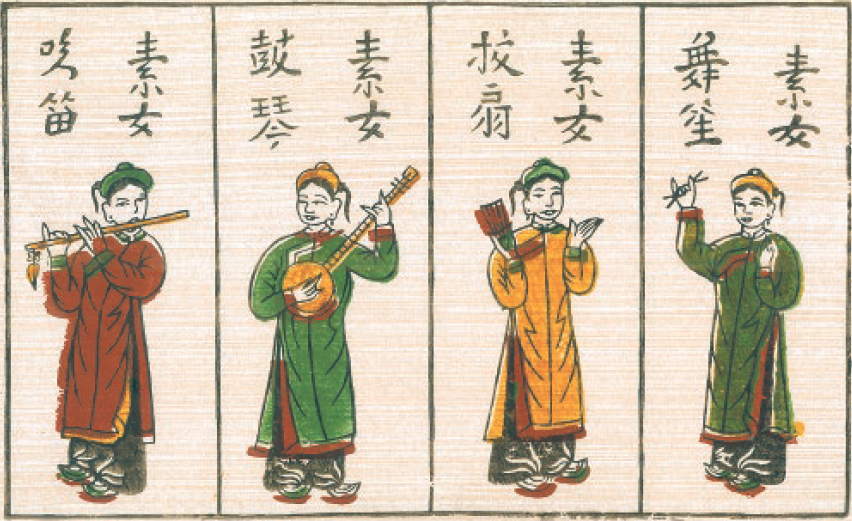 素女
舞笙
素女
扇
素女
鼓琴
素女
吹笛